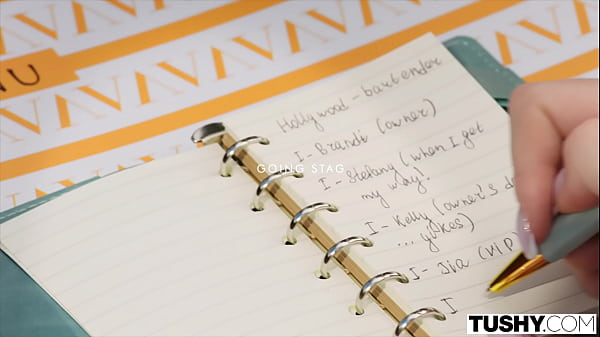 NU
GOING STAG
Hollywood - bartender
I - Brandi (owner)
I - Stefany (when I get
my way!
I - Kelly (owner's d
... yikes)
I - Jia (VIP)
I
TUSHY.COM